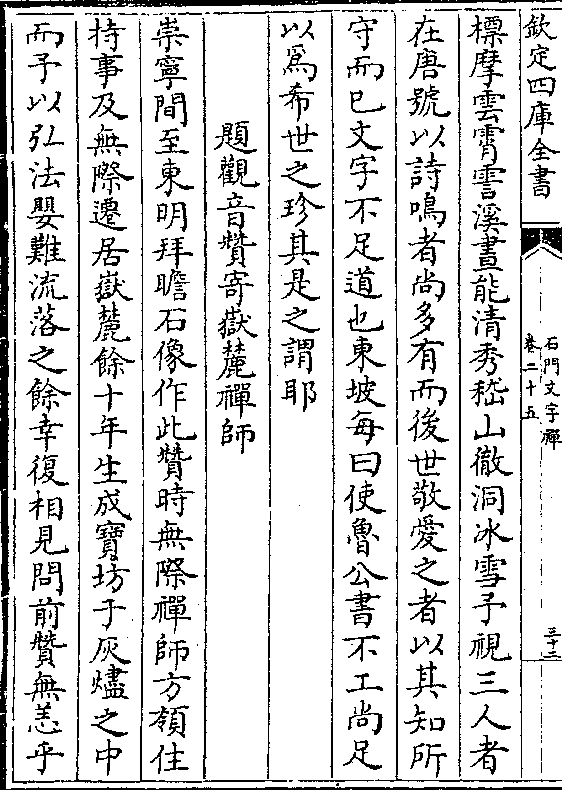 欽定四庫全書
石門文字禪
卷二十五
三十二
標摩雲霄霅溪晝能清秀嵇山徹洞冰雪予視三人者
在唐號以詩鳴者尚多有而後世敬愛之者以其知所
守而已文字不足道也東坡每曰使魯公書不工尚足
以爲希世之珍其是之謂耶
題觀音贊寄嶽麓禪師
崇寧間至東明拜瞻石像作此贊時無際禪師方領住
持事及無際遷居嶽麓餘十年生成寶坊于灰燼之中
而予以弘法嬰難流落之餘幸復相見問前贊無恙乎